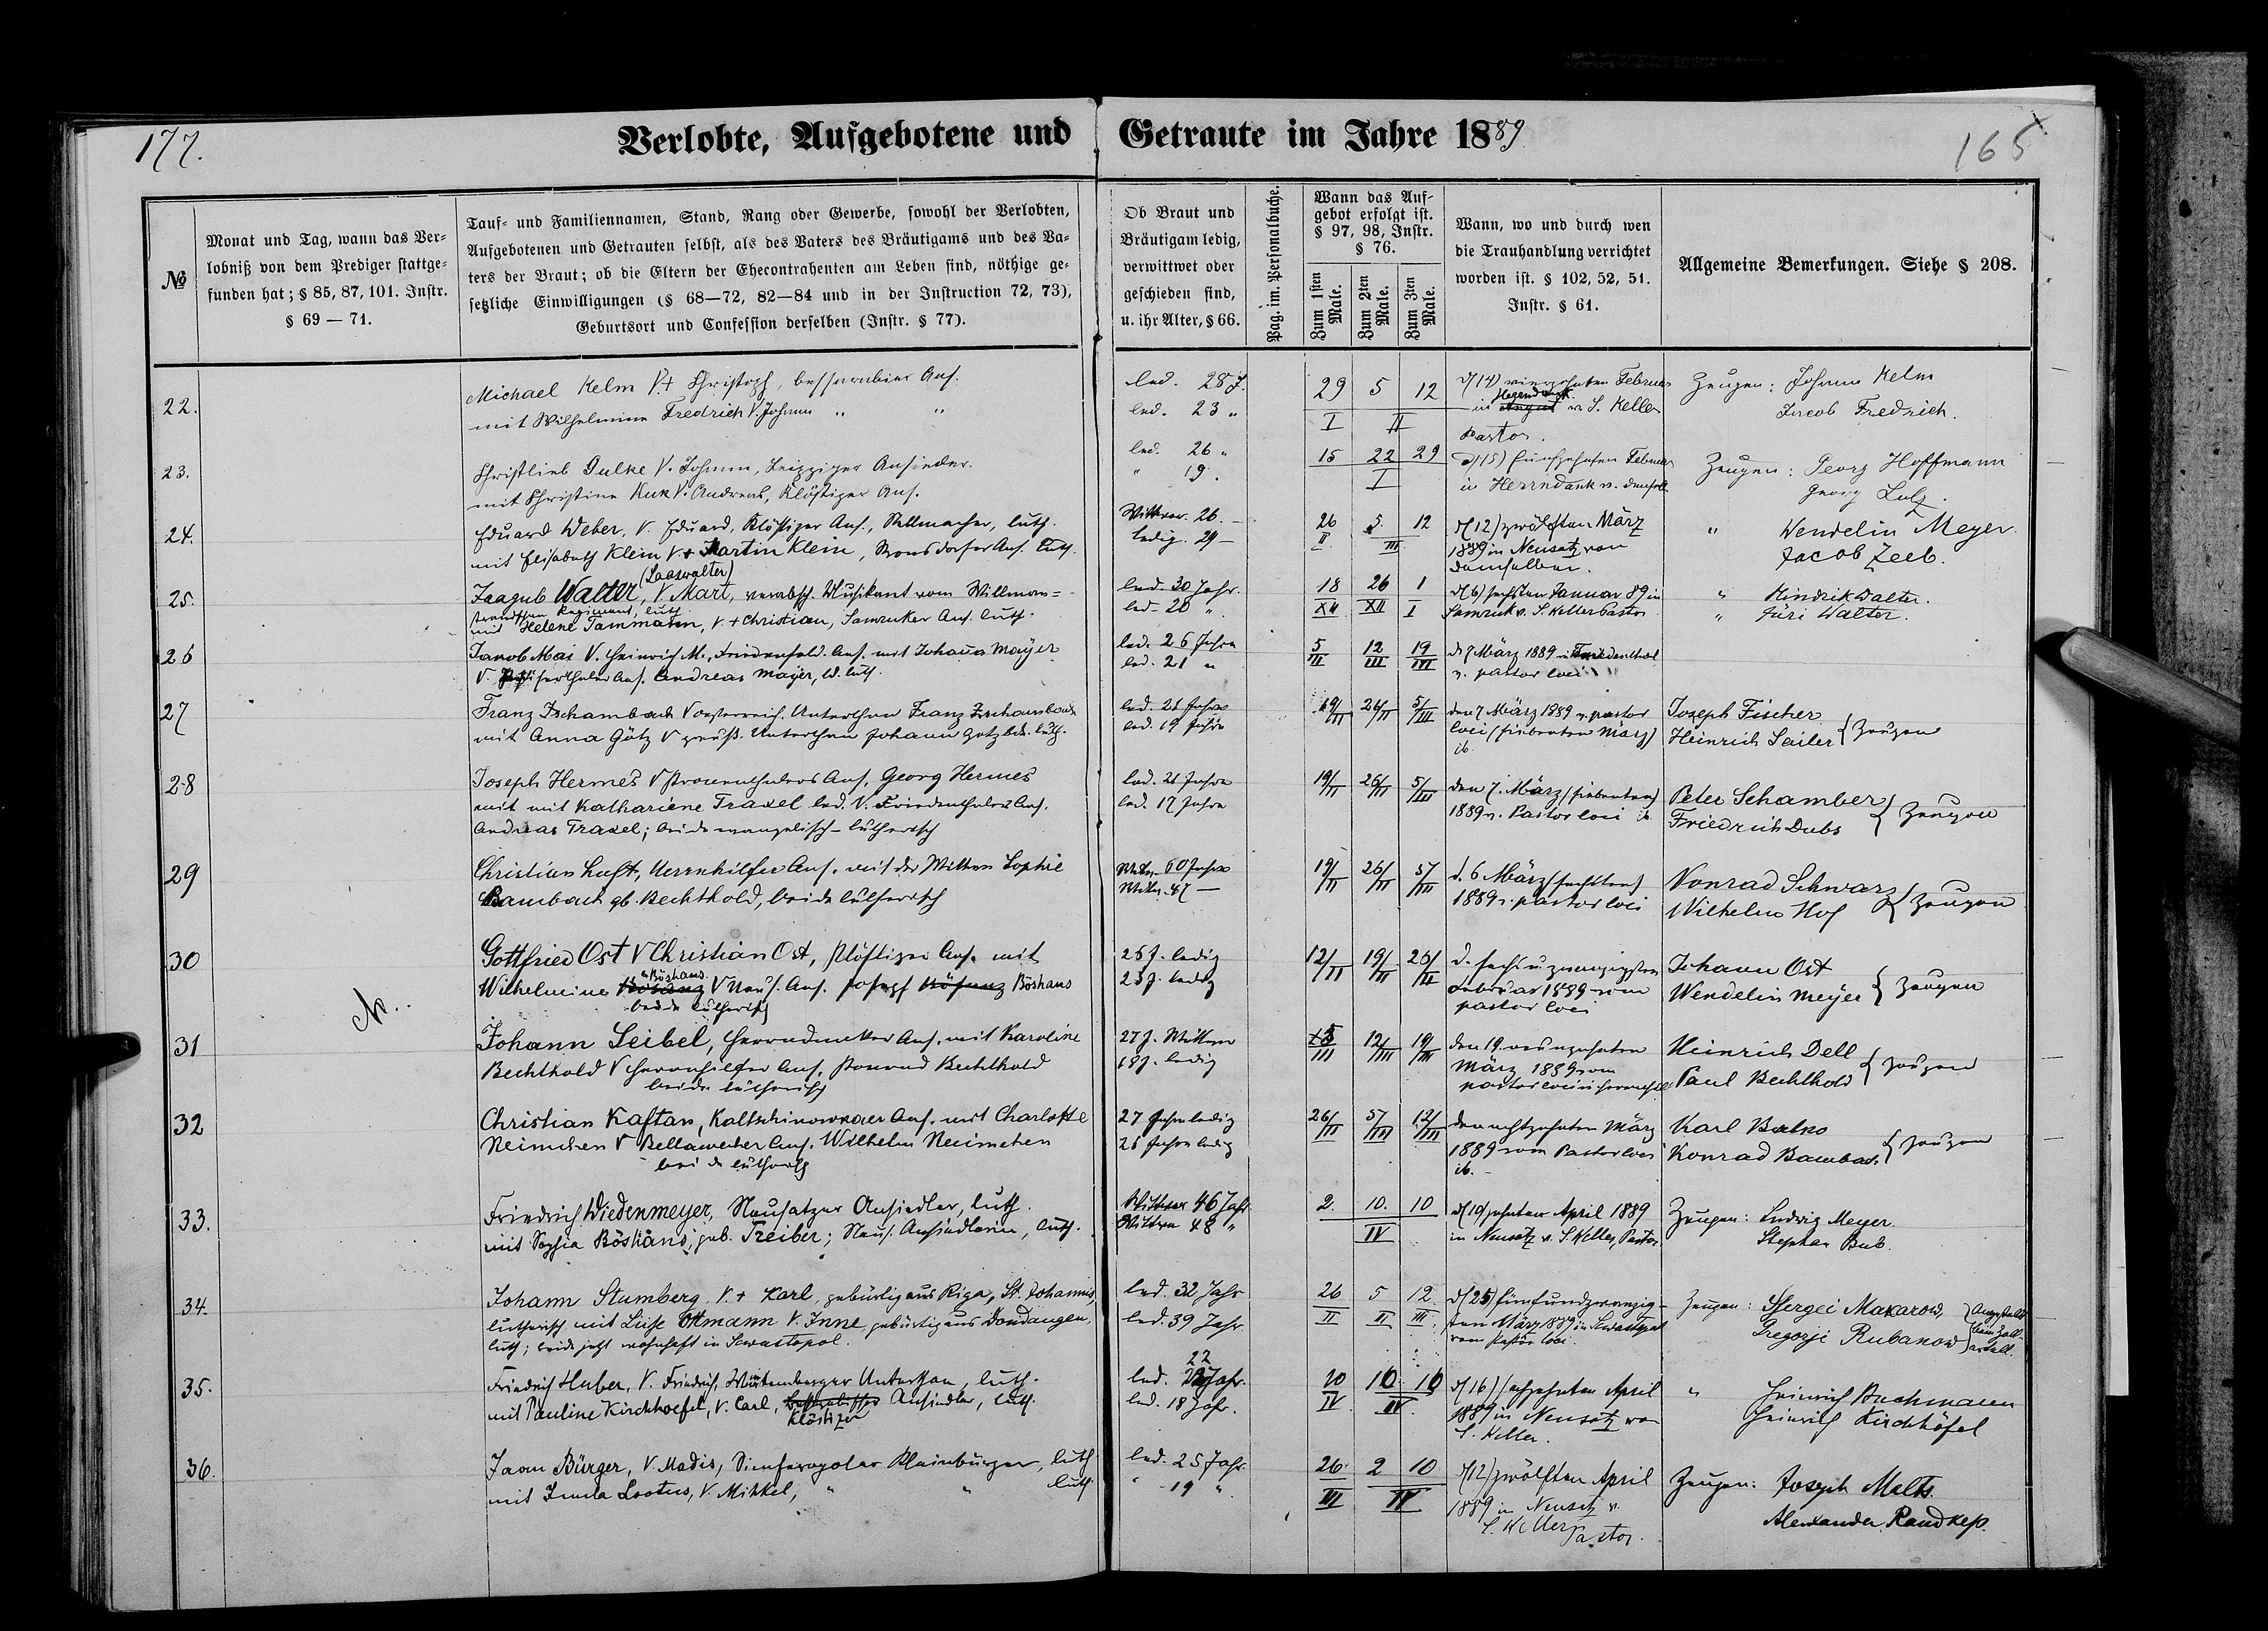 177.
Verlobte, Aufgebotene und Getraute im Jahre 1889
165
№
Monat und Tag, wann das Ver-
lobniß von dem Prediger stattge-
funden hat; § 85, 87, 101. Instr.
§ 69 — 71.
Tauf- und Familiennamen, Stand, Rang oder Gewerbe, sowohl der Verlobten,
Aufgebotenen und Getrauten selbst, als des Vaters des Bräutigams und des Va-
ters der Braut; ob die Eltern der Ehecontrahenten am Leben sind, nöthige ge-
setzliche Einwilligungen (§ 68—72, 82—84 und in der Instruction 72, 73),
Geburtsort und Confession derselben (Instr. § 77).
Ob Braut und
Bräutigam ledig,
verwittwet oder
geschieden sind,
u. ihr Alter, § 66.
Pag. im. Personalbuche.
Wann das Auf-
gebot erfolgt ist.
§ 97, 98, Instr.
§ 76.
Zum 1sten Male.
Zum 2ten Male.
Zum 3ten Male.
Wann, wo und durch wen
die Trauhandlung verrichtet
worden ist. § 102, 52, 51.
Instr. § 61.
Allgemeine Bemerkungen. Siehe § 208.
22.
Michael Kelm V.+ Christoph, bessarabier Ans.
mit Wilhelmine Fredrich V. Johann " "
led. 28 J.
led. 23 "
29 5 12
I II
d (14) vierzehnten Februar
in v. S. Keller
Pastor.
Zeugen: Johann Kelm
Jacob Fredrich.
23.
Christlieb Gulke V. Johann, Leipziger Ansiedler.
mit Christine Kuk V. Andreas, Klöstizer Ans.
led. 26 "
" 19.
15 22 29
I
d (15) fünfzehnten Februar
in Herrndank v. demselb.
Zeugen: Georg Hoffmann
Georg Lutz.
24.
Eduard Weber, V. Eduard, Klöstizer Ans., Stellmacher, luth.
mit Elisabeth Klein V+ Martin Klein, Kronsdorfer Ans. luth.
Wittwer. 26. —
ledig. 29 —
26 5. 12
II III
d (12) zwölften März
1889 in Neusatz von
demselben.
" Wendelin Meyer
Jacob Zeeb.
25.
(Laaswalter)
Jaagub Walter, V. Mart, verabsch. Musikant vom Willman-
strandschen Regiment, luth.
mit Helene Tammann, V. + Christian, Samruker Ans. luth.
led. 30 Jahr.
led. 20 "
18 26 1
XII XII I
d (6) sechsten Januar 89 in
Samruk v. S. Keller Pastor
" Hindrik Walter.
" Jüri Walter.
26
Jakob Mai V. Heinrich M., Friedenfeld. Ans. mit Johana Mayer
V. Ans. Andreas Mayer, bd. luth.
led. 26 Jahre
led. 21 "
5/III 12/III 19/III
d. 7 März 1889 in Friedenthal
v. pastor loci
27
Franz Zschambach V oesterreich. Unterthan Franz Zschambach
mit Anna Götz V preuß. Unterthan Johann Götz bde. luth.
led. 21 Jahre
led. 19 Jahre
19/II 26/II 5/III
den 7 März 1889 v. pastor
loci (siebenten März)
ib.
Joseph Fischer
Heinrich Sailer } Zeugen
28
Joseph Hermes V Kronenthaler Ans. Georg Hermes
mit mit Kathariene Traxel led. V. Friedenthaler Ans.
Andreas Traxel; beide evangelisch-lutherisch
led. 21 Jahre
led. 17 Jahre
19/II 26/II 5/III
den 7. März (siebenten)
1889 v. Pastor loci ib.
Peter Schamber
Friedrich Dubs } Zeugen
29
Christian Luft, Herrnhilfer Ans. mit der Wittwe Sophie
Bambach gb. Bechthold, beide lutherisch
Wittw. 60 Jahre
Wittw. 47 —
19/II 26/II 5/III
d. 6 März (sechsten)
1889 v. pastor loci
Konrad Schwarz
Wilhelm Hof } Zeugen
30
Gottfried Ost V Christian Ost, Klöstizer Ans. mit
Böshans
Wilhelmine V Neus. Ans. Joseph Böshans
beide lutherisch
26 J. ledig
23 J. ledig
12/II 19/II 26/II
d. sechsundzwanzigsten
Februar 1889 vom
pastor loci
Johann Ost
Wendelin Meyer } Zeugen
31
Johann Seibel, Herrndanker Ans. mit Karoline
Bechthold V Herrnhilfer Ans. Konrad Bechthold
beide lutherisch
27 J. Wittwer
18 J. ledig
5/III 12/III 19/III
den 19. neunzehnten
März 1889 vom
pastor loci in Herrnhilf
Heinrich Dell
Paul Bechthold } Zeugen
32
Christian Kaftan, Kaltschinowkaer Ans. mit Charlotte
Neimchen V Bellawescher Ans. Wilhelm Neimchen
beide lutherisch
27 Jahre ledig
26 Jahre ledig
26/II 5/III 12/III
den achtzehnten März
1889 vom Pastor loci
ib. —
Karl Balko
Konrad Bambach } Zeugen
33.
Friedrich Wiedenmeyer, Neusatzer Ansiedler, luth.
mit Sophia Böshans, geb. Treiber; Neus. Ansiedlerin, luth.
Wittwer 46 Jahr
Wittwe 48 "
2. 10. 10
IV
d (10) zehnten April 1889
in Neusatz v. S. Keller, Pastor
Zeugen: Ludwig Meyer.
Stephan Bub.
34.
Johann Stumberg V. + Karl, gebürtig aus Riga, St. Johannis,
lutherisch mit Liese Ottmann V. Inne gebürtig aus Dondangen,
luth; beide jetzt wohnhaft in Sewastopol.
led. 32 Jahr
led. 39 Jahr.
26 5 12.
II II III
d (25) fünfundzwanzig-
sten März 1889 in Sewastopol
vom Pastor loci.
Zeugen: Ssergei Makarow,
Gregorji Rubanow
35.
Friedrich Huber, V. Friedrich, Würtemberger Unterthan, luth.
mit Pauline Kirchhoefel, V. Carl, Ansiedler, luth.
Klöstizer
22
led. Jahr.
led. 18 Jahr.
20 10 10
IV. IV.
d (16) sechzehnten April
1889 in Neusatz von
S. Keller.
" Heinrich Buchmann
Heinrich Kirchhöfel
36.
Jaan Bürger, V. Madis, Simferopoler Kleinbürger, luth.
mit Leena Lootus, V. Mikkel, " " luth.
led. 25 Jahr.
" 19 "
26. 2 10
III IV
d (12) zwölften April
1889 in Neusatz v.
S. Keller, Pastor.
Zeugen: Joseph Malts.
Alexander Randkep.